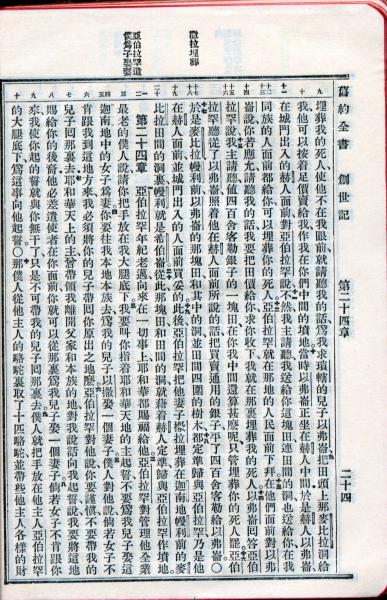 舊約全書 創世記 第二十四章 二十四
撒拉埋葬
亞伯拉罕遣
僕爲子娶妻
埋葬我的死人使他不在我眼前就請聽我的話爲我求瑣轄的兒子以弗崙把田頭上那麥比拉洞給
我他可以按着足價賣給我作我在你們中間的墳地當時以弗崙正坐在赫人中間於是赫人以弗崙
在城門出入的赫人面前對亞伯拉罕說不然我主請聽我送給你這塊田連田間的洞也送給你在我
同族的人面前都給你可以埋葬你的死人亞伯拉罕就在那地的人民面前下拜在他們面前對以弗
崙說你若應允請聽我的話我要把田價給你求你收下我就在那裏埋葬我的死人以弗崙回答亞伯
拉罕說我主請聽值四百舍客勒銀子的一塊田在你我中間還算甚麽呢只管埋葬你的死人罷亞伯
拉罕聽從了以弗崙照着他在赫人面前所說的話把買賣通用的銀子平了四百舍客勒給以弗崙〇
於是麥比拉幔利前以弗崙的那塊田和其中的洞並田間四圍的樹木都定準歸與亞伯拉罕乃是他
在赫人面前並城門出入的人面前買妥的此後亞伯拉罕把他妻子撒拉埋葬在迦南地幔利前的麥
比拉田間的洞裏幔利就是希伯崙從此那塊田和田間的洞就藉着赫人定準歸與亞伯拉罕作墳地
第二十四章 亞伯拉罕年紀老邁向來在一切事上耶和華都賜福給他亞伯拉罕對管理他全業
最老的僕人說請你把手放在我大腿底下我要叫你指着耶和華天地的主起誓不要爲我兒子娶這
迦南地中的女子爲妻你要往我本地本族去爲我的兒子以撒娶一個妻子僕人對他說倘若女子不
肯跟我到這地方來我必須將你的兒子帶回你原出之地麽亞伯拉罕對他說你要謹慎不要帶我的
兒子回那裏去耶和華天上的主曾帶領我離開父家和本族的地對我說話向我起誓說我要將這地
賜給你的後裔他必差遣使者在你面前你就可以從那裏爲我兒子娶一個妻子倘若女子不肯跟你
來我使你起的誓就與你無干了只是不可帶我的兒子回那裏去僕人就把手放在他主人亞伯拉罕
的大腿底下爲這事向他起誓〇那僕人從他主人的駱駝裏取了十匹駱駝並帶些他主人各樣的財